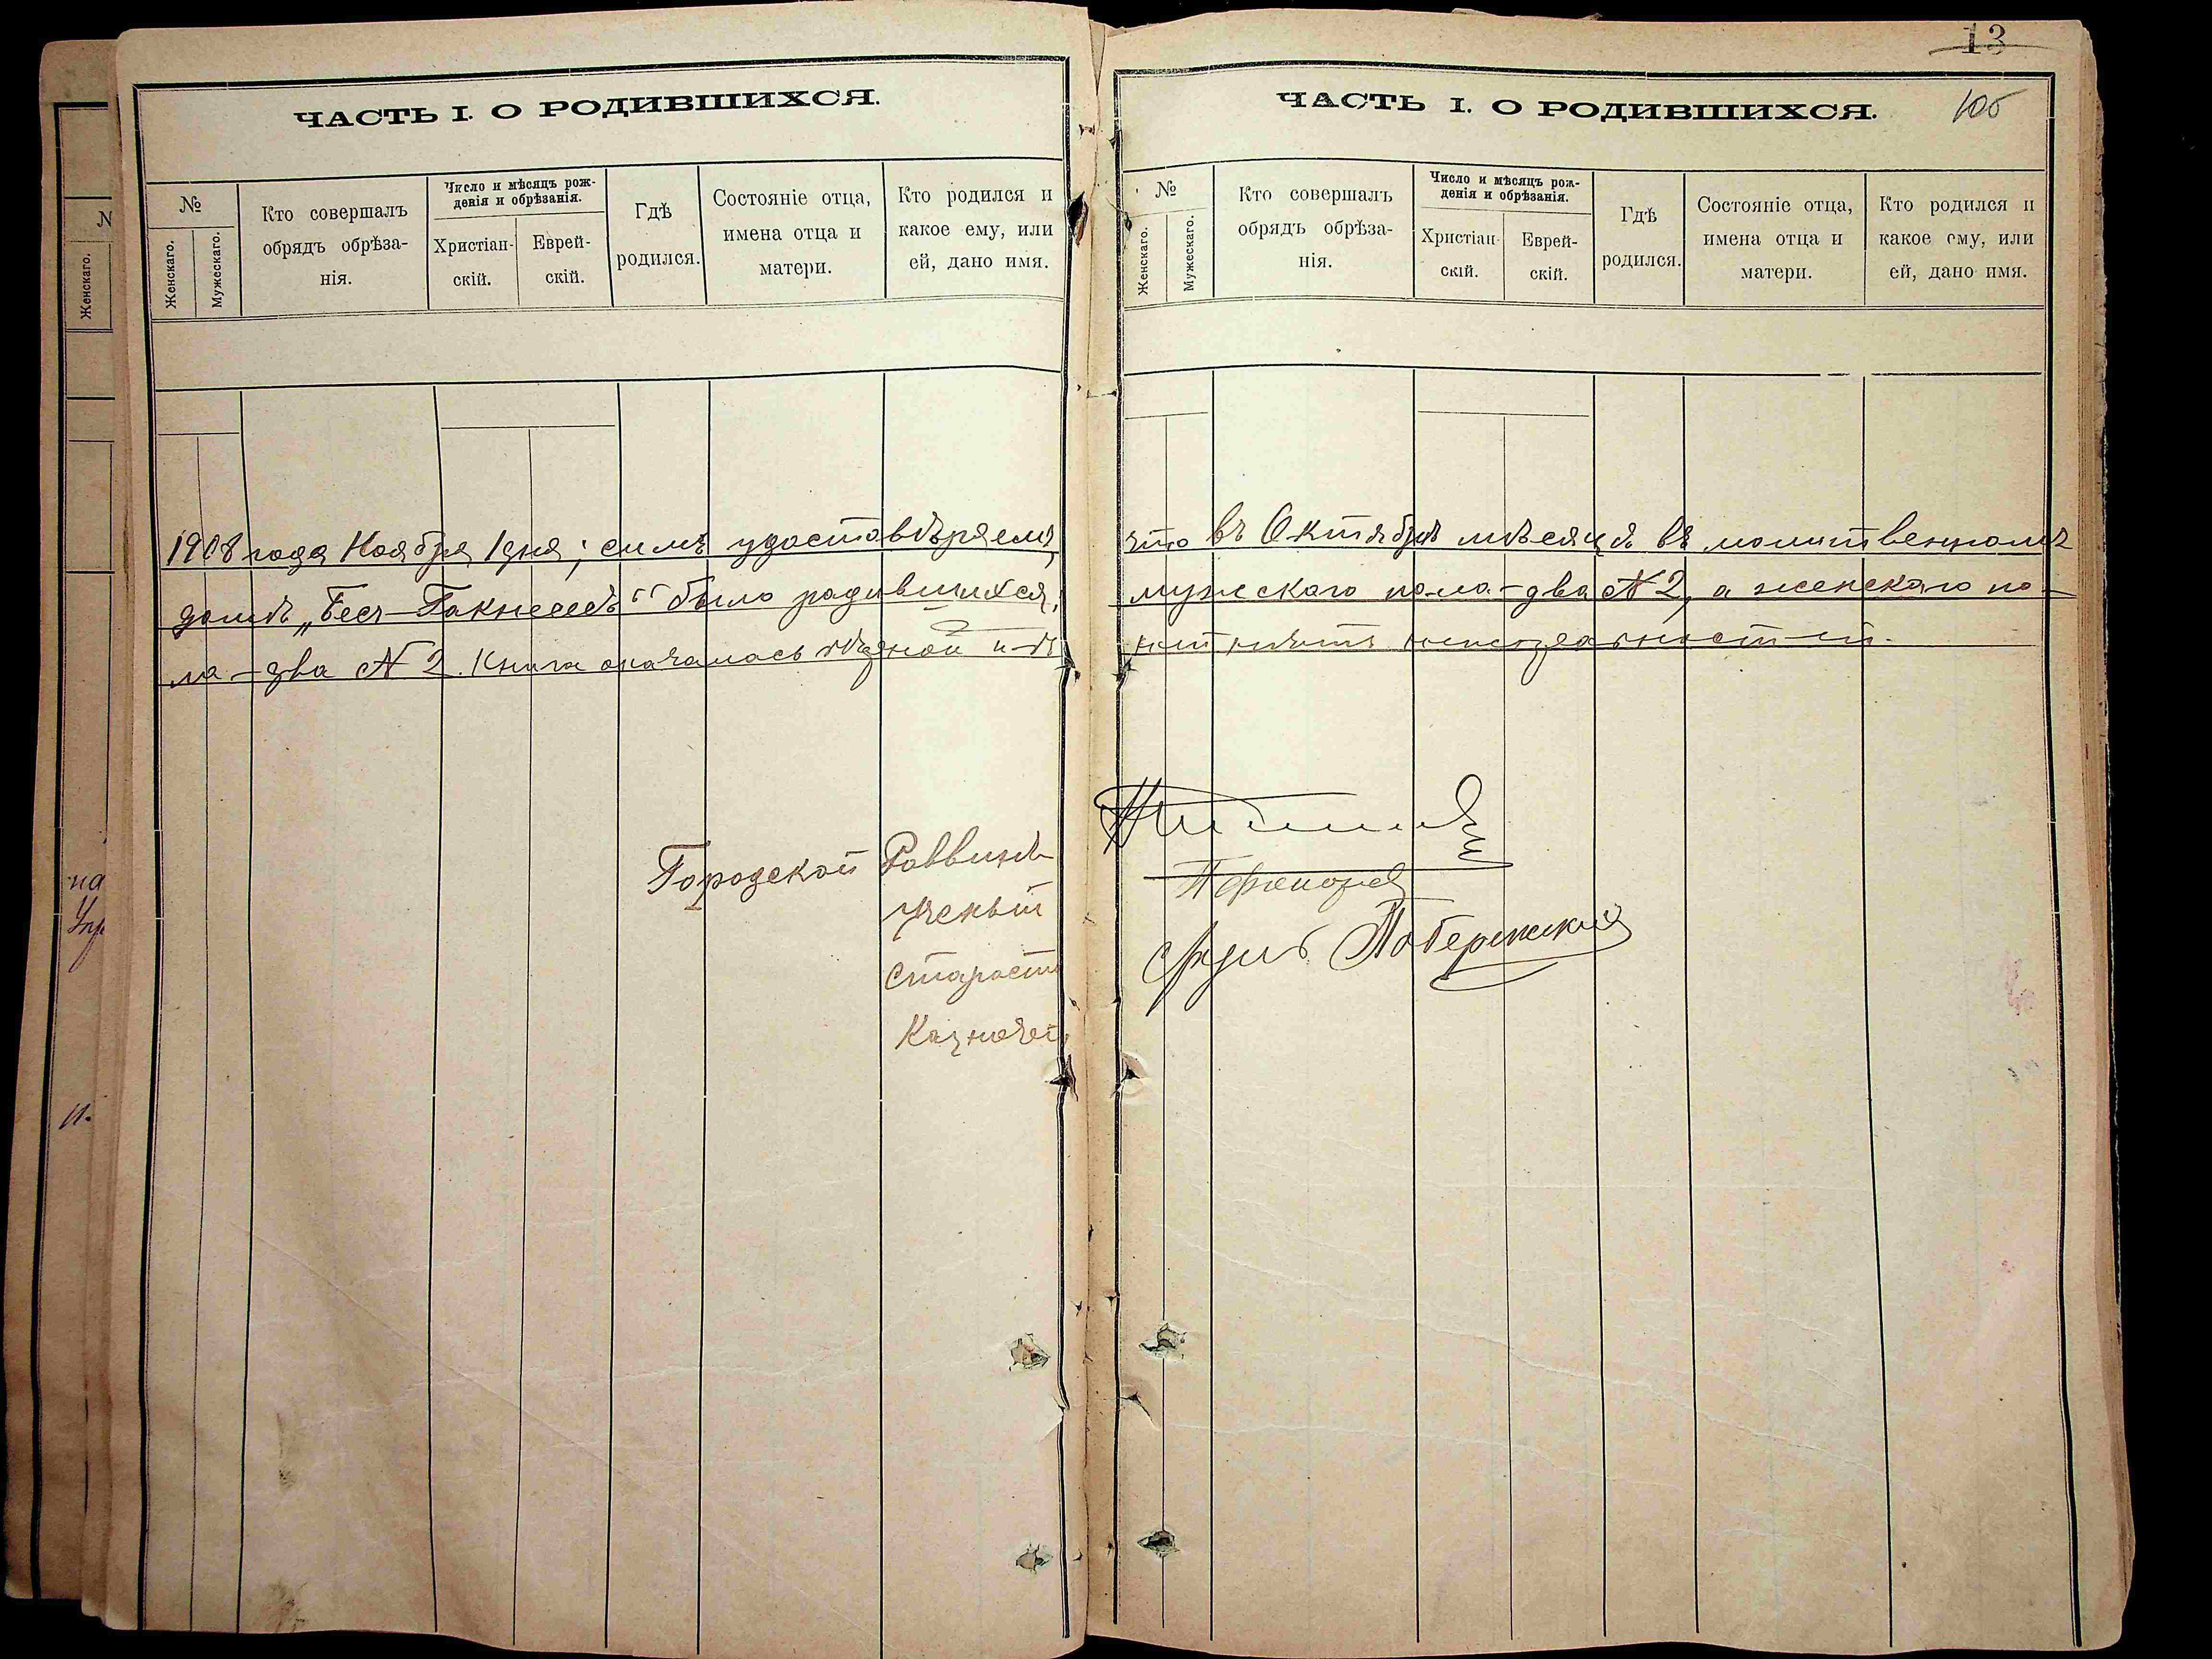 13
ЧАСТЬ I. О РОДИВШИХСЯ.
№
Женскаго.
Мужескаго.
Кто совершалъ
обрядъ обрѣза-
нія.
Число и мѣсяцъ рож-
денія и обрѣзанія.
Христіан-
скій.
Еврей-
скій.
Гдѣ
родился.
Состояніе отца,
имена отца и
матери.
Кто родился и
какое ему, или
ей, дано имя.
1908 года Ноября 1 дня; симъ удостовѣряемъ,
домѣ „Бес-Гакнесесъ“ было родившихся,
ла-два № 2. Книга
Городской Раввинъ
Ученый
Староста
Казначей
ЧАСТЬ I. О РОДИВШИХСЯ.
№
Женскаго.
Мужескаго.
Кто совершалъ
обрядъ обрѣза-
нія.
Число и мѣсяцъ рож-
денія и обрѣзанія.
Христіан-
скій.
Еврей-
скій.
Гдѣ
родился.
Состояніе отца,
имена отца и
матери.
Кто родился и
какое ему, или
ей, дано имя.
что въ Октябрѣ мѣсяцѣ въ молитвенномъ
мужескаго пола-два № 2, а женскаго по-
Побережскій
N
Женскаго.